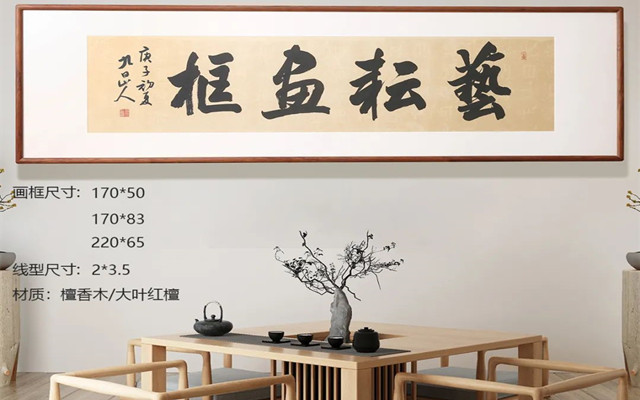 藝耘畫框
庚子初夏
九日山人
画框尺寸：170*50
170*83
220*65
线型尺寸：2*3.5
材质：檀香木/大叶红檀